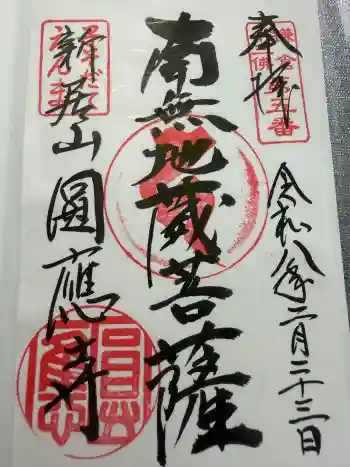 奉拝
令和八年二月二十三日
南無地蔵菩薩
新居山圓應寺
第五番